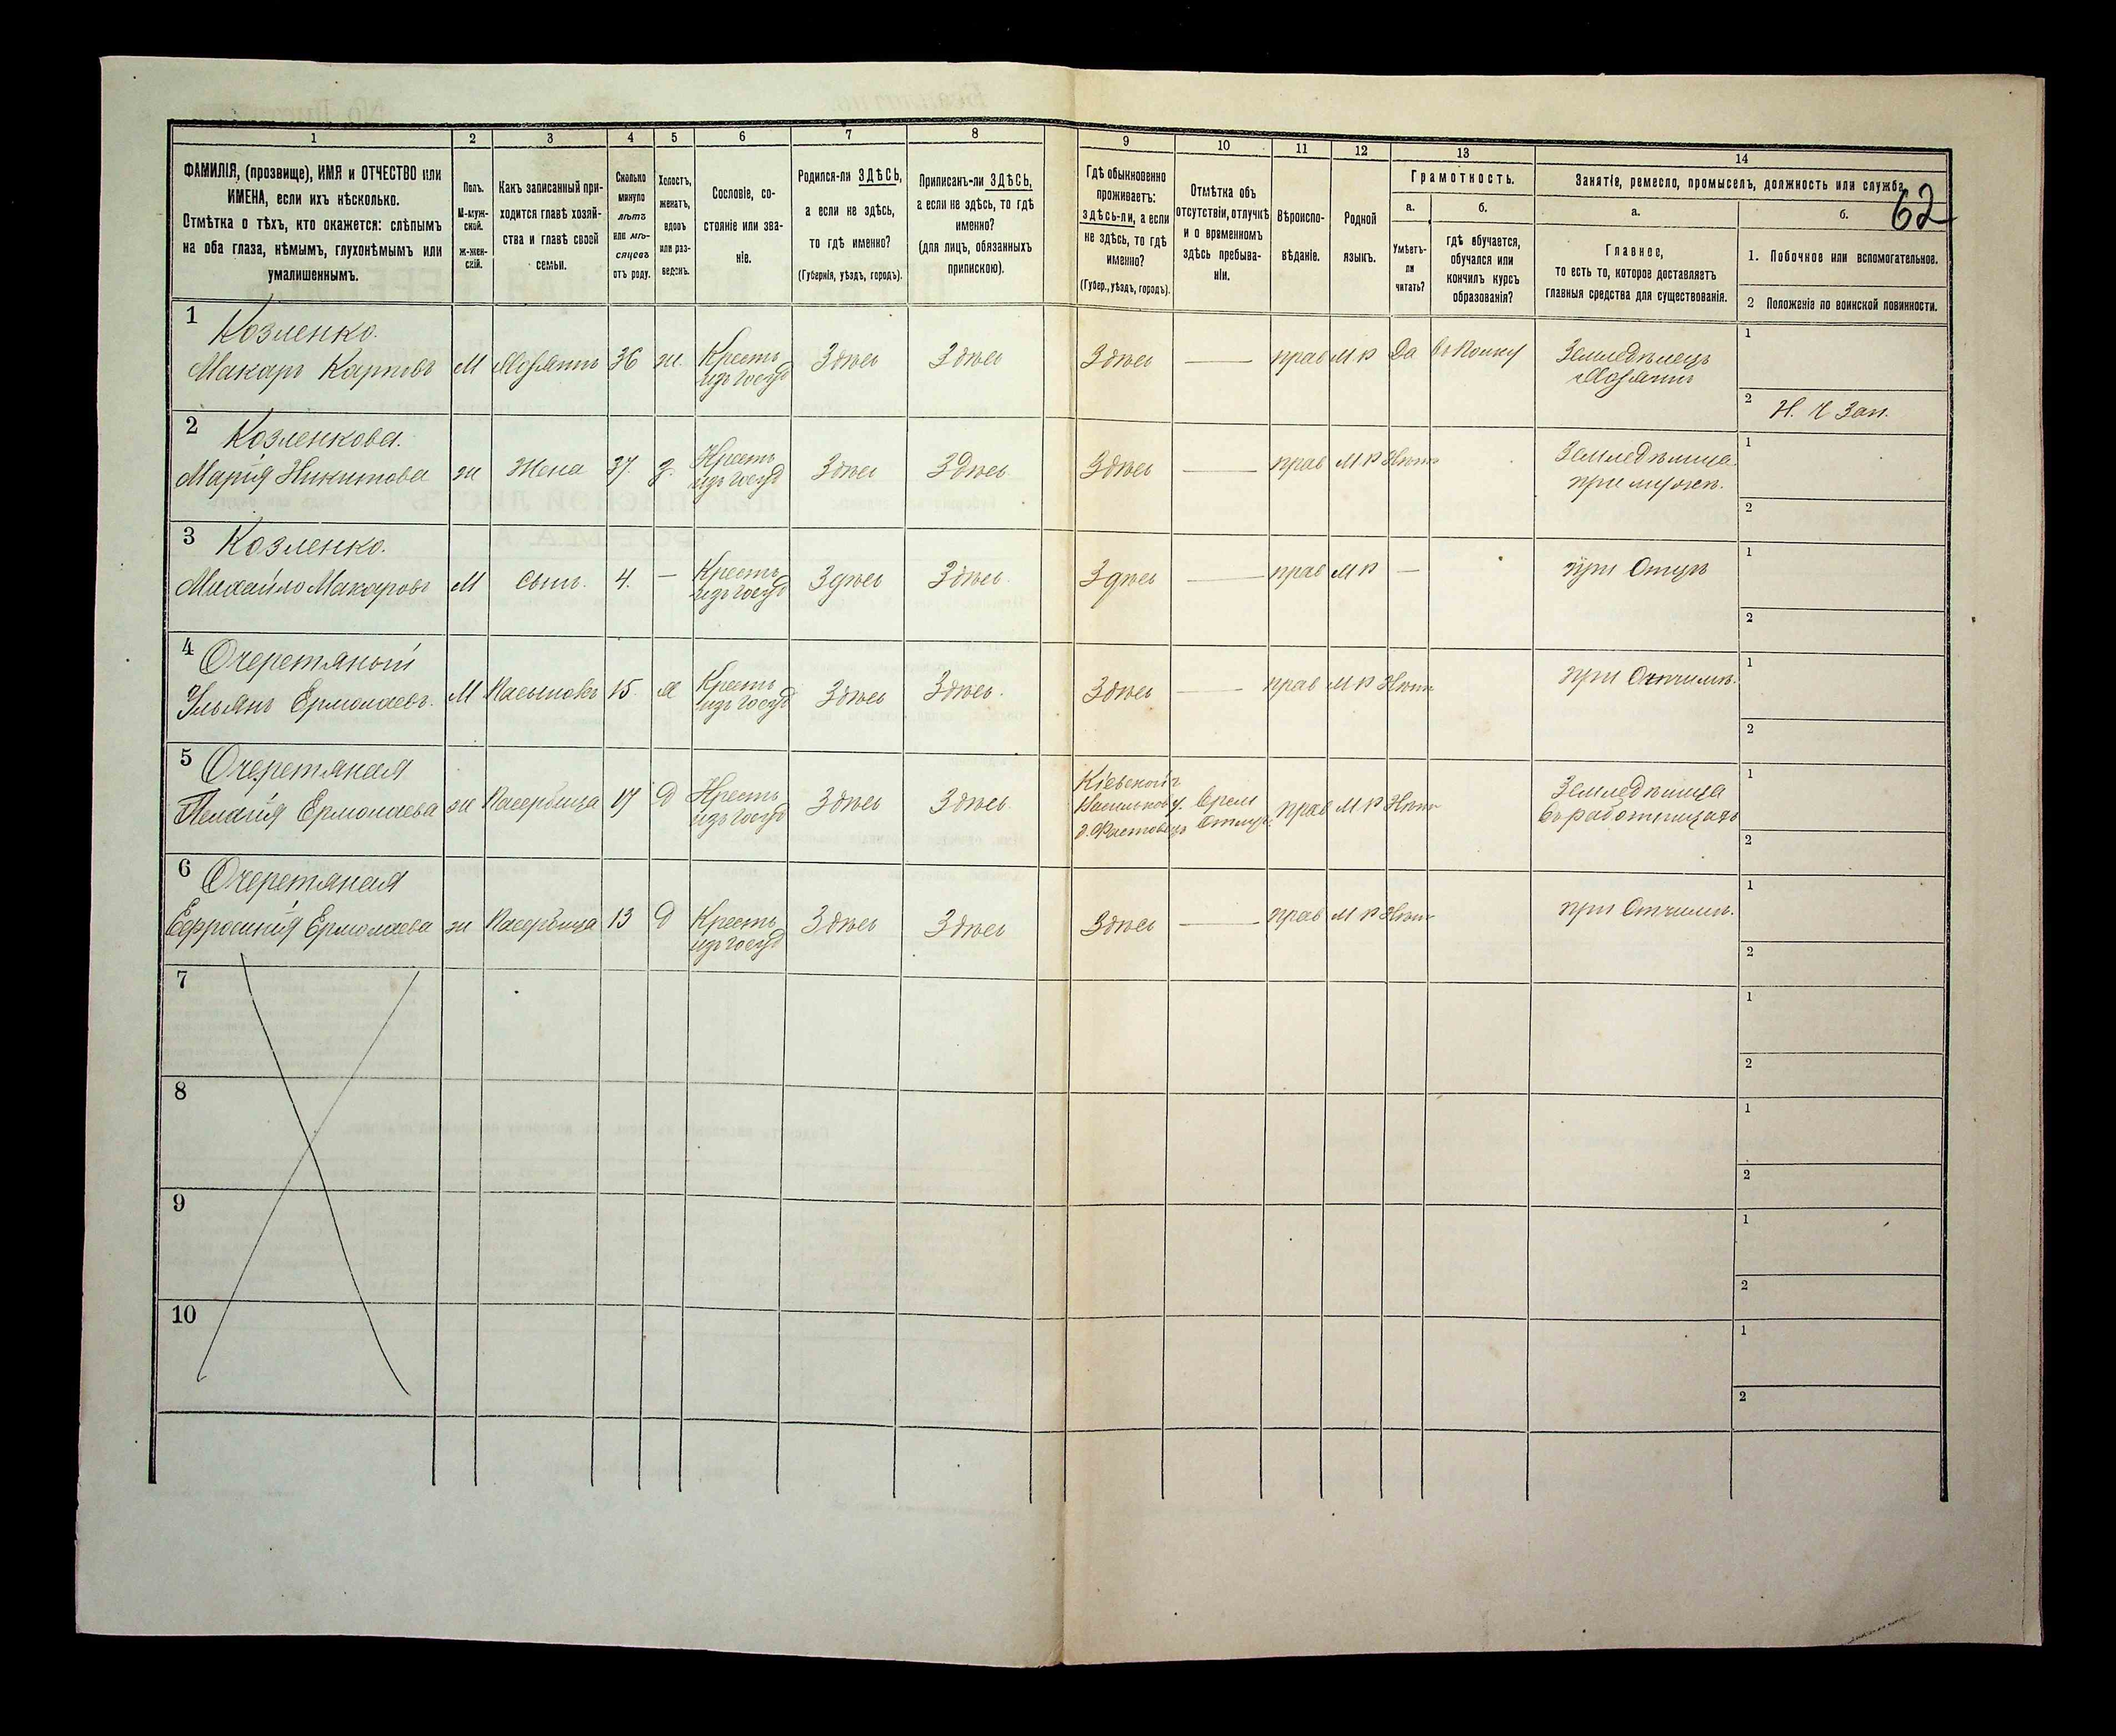 62
1 2 3 4 5 6 7 8 9 10 11 12 13 14
ФАМИЛІЯ, (прозвище), ИМЯ и ОТЧЕСТВО или
ИМЕНА, если ихъ нѣсколько.
Отмѣтка о тѣхъ, кто окажется: слѣпымъ
на оба глаза, нѣмымъ, глухонѣмымъ или
умалишеннымъ.
Полъ.
М-муж-
ской.
ж-жен-
скій.
Какъ записанный при-
ходится главѣ хозяй-
ства и главѣ своей
семьи.
Сколько
минуло
лѣтъ
или мѣ-
сяцевъ
отъ роду.
Холостъ,
женатъ,
вдовъ
или раз-
веденъ.
Сословіе, со-
стояніе или зва-
ніе.
Родился-ли ЗДѢСЬ,
а если не здѣсь,
то гдѣ именно?
(Губернія, уѣздъ, городъ).
Приписанъ-ли ЗДѢСЬ,
а если не здѣсь, то гдѣ
именно?
(для лицъ, обязанныхъ
припискою).
Гдѣ обыкновенно
проживаетъ:
здѣсь-ли, а если
не здѣсь, то гдѣ
именно?
(Губер., уѣздъ, городъ).
Отмѣтка объ
отсутствіи, отлучкѣ
и о временномъ
здѣсь пребыва-
ніи.
Вѣроиспо-
вѣданіе.
Родной
языкъ.
Грамотность.
а.
Умѣетъ-
ли
читать?
б.
гдѣ обучается,
обучался или
кончилъ курсъ
образованія?
Занятіе, ремесло, промыселъ, должность или служба.
а.
Главное,
то есть то, которое доставляетъ
главныя средства для существованія.
б.
1. Побочное или вспомогательное.
2 Положеніе по воинской повинности.
1 Козленко.
Макаръ Карповъ М Хозяинъ 36 ж. Крестъ изъ госуд Здѣсь Здѣсь Здѣсь — прав М Р Да въ Полку Земледѣлецъ
Хозяинъ
1
2 Н. Ч Зап.
2 Козленкова.
Марія Никитова ж Жена 37. з. Крестъ изъ госуд Здѣсь Здѣсь. Здѣсь — прав М Р Нѣтъ Земледѣлица
при мужѣ.
1
2
3 Козленко.
Михайло Макаровъ М Сынъ. 4. — Крестъ изъ госуд Здѣсь Здѣсь. Здѣсь — прав М Р — при Отцѣ
1
2
4 Очеретяный
Ульянъ Ермолаевъ. М Пасынокъ 15. х Крестъ изъ госуд Здѣсь Здѣсь. Здѣсь — прав М Р Нѣтъ при Отчимѣ.
1
2
5 Очеретяная
Пелагія Ермолаева ж Падчерица 17 Д Крестъ изъ госуд Здѣсь Здѣсь. Кіевской г
Васильков у.
д. Фастовецъ Врем
Отлуч. прав М Р Нѣтъ Земледѣлица
въ работницахъ
1
2
6 Очеретяная
Ефросинія Ермолаева ж Падчерица 13 Д Крестъ изъ госуд Здѣсь Здѣсь Здѣсь — прав М Р Нѣтъ при Отчимѣ.
1
2
7
1
2
8
1
2
9
1
2
10
1
2